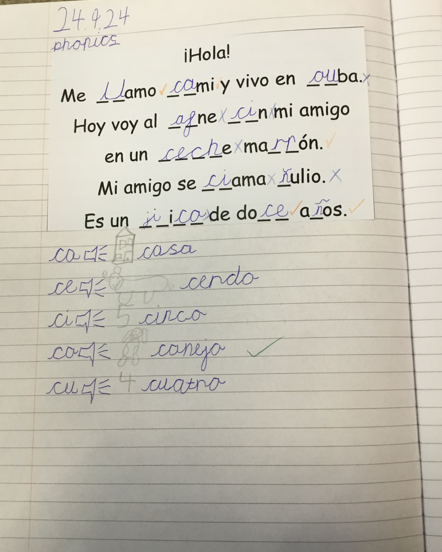 24.9.24
phonics
¡Hola!
Me Llamo cami y vivo en ouba.
Hoy voy al cine cin mi amigo
en un ceche marrón.
Mi amigo se ciama ñulio.
Es un jico de doce años.
ca casa
ce cendo
ci 5 cinco
co conejo
cu 4 cuatro